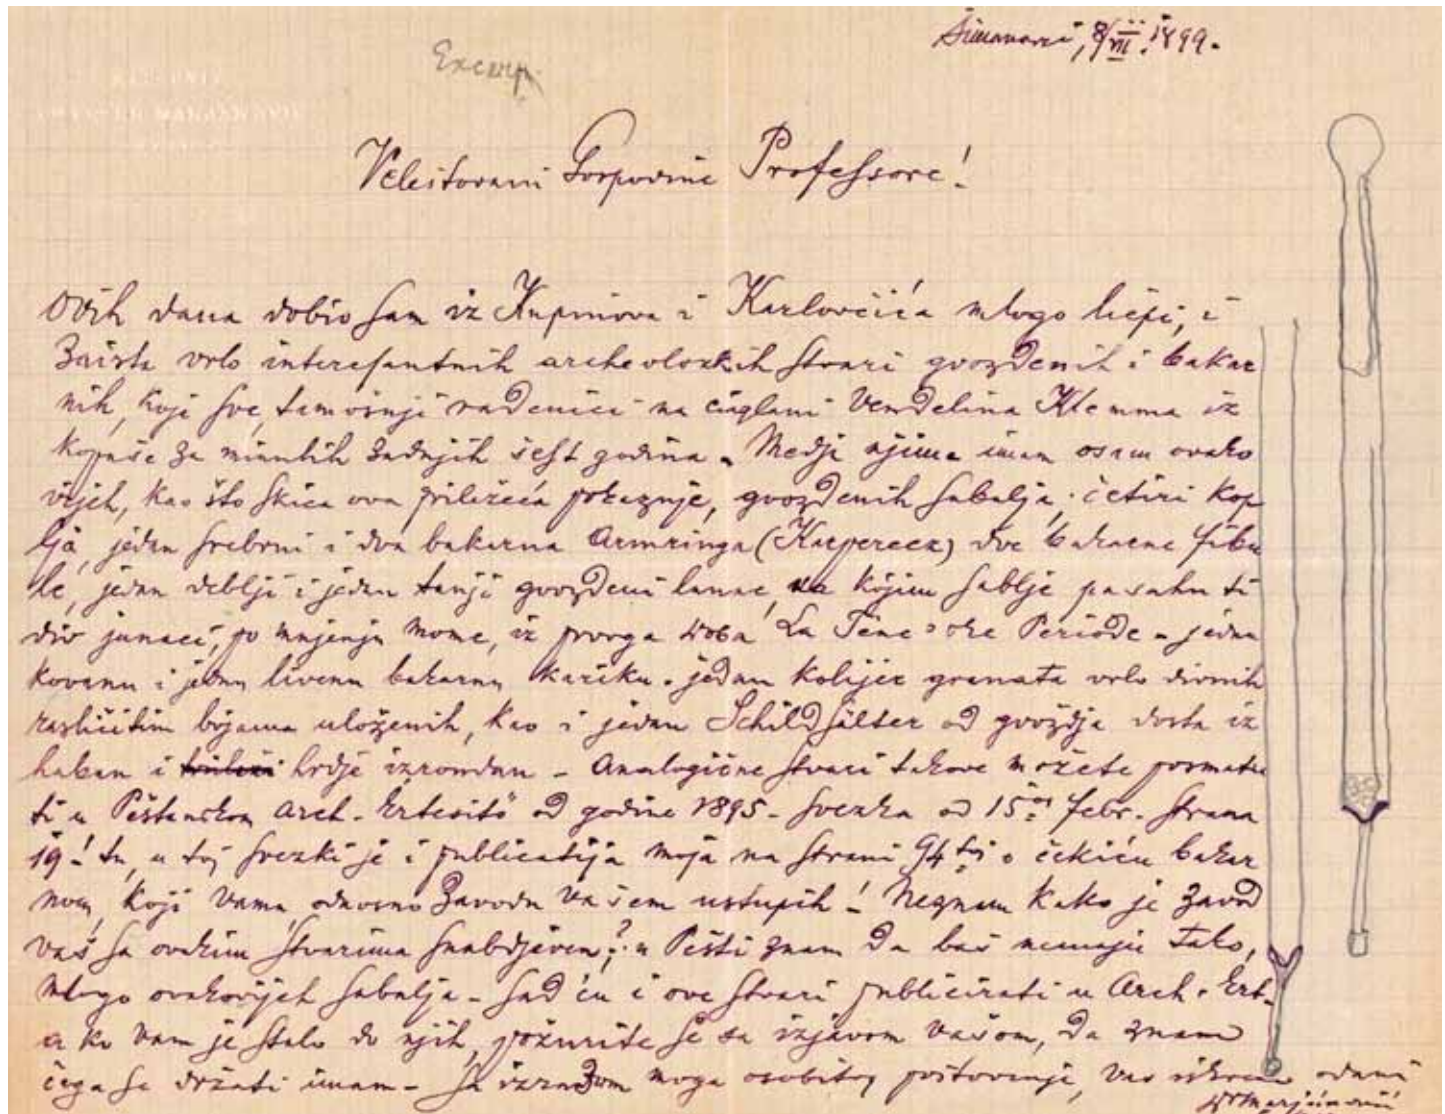 Šimanovci, 8/VII. 1899.
Excerp.
Veleštovani Gospodine Professore!
Ovih dana dobio sam iz Kupinova i Karlovčića mlogo liepi, i
zaista vrlo interesantnih archeoložkih stvari gvozdenih i bakar
nih, koje sve, tamošnji radenici na ciglani Vendelina Klemma iz
kopaše za minulih zadnjih šest godina. Medji njima imam osam ovako
vijeh, kao što skica ova priležeća pokazuje, gvozdenih sabalja, četiri kop
lja, jedan srebrni i dva bakarna Armringa (Karperecz) dve bakarne fibu
le, jedan deblji i jedan tanji gvozdeni lanac, na kojim sablje pasahu ti
div junaci, po mnjenju mome, iz prvoga doba La Tène-ske Periode - jednu
kovanu i jednu livenu bakarnu kariku. jedan kolijer granata vrlo divnih
različitim bojama uloženih, kao i jedan Schildhälter od gvoždja dosta iz
haban i hrdje izromdan - Analogične stvari takove možete posmatra
ti u Peštanskom Arch. Ertesitö od godine 1895. svezka od 15. febr. strana
19! tu, u toj svezki je i publicatija moja na strani 94 toj o čekiću bakar
nom, koji vama, odnosno Zavodu vašem ustupih! Neznam kako je Zavod
vaš sa ovakim stvarima snabdjeven? u Pešti znam da baš nemaju tako,
mlogo ovakovijeh sabalja - sad ću i ove stvari publicirati u Arch. Ert.
a ko vam je stalo do njih, požurite se sa izjavom vašom, da znam
čega se držati imam - sa izrazom moga osobitog poštovanja, vas odani
Dr Marjanović